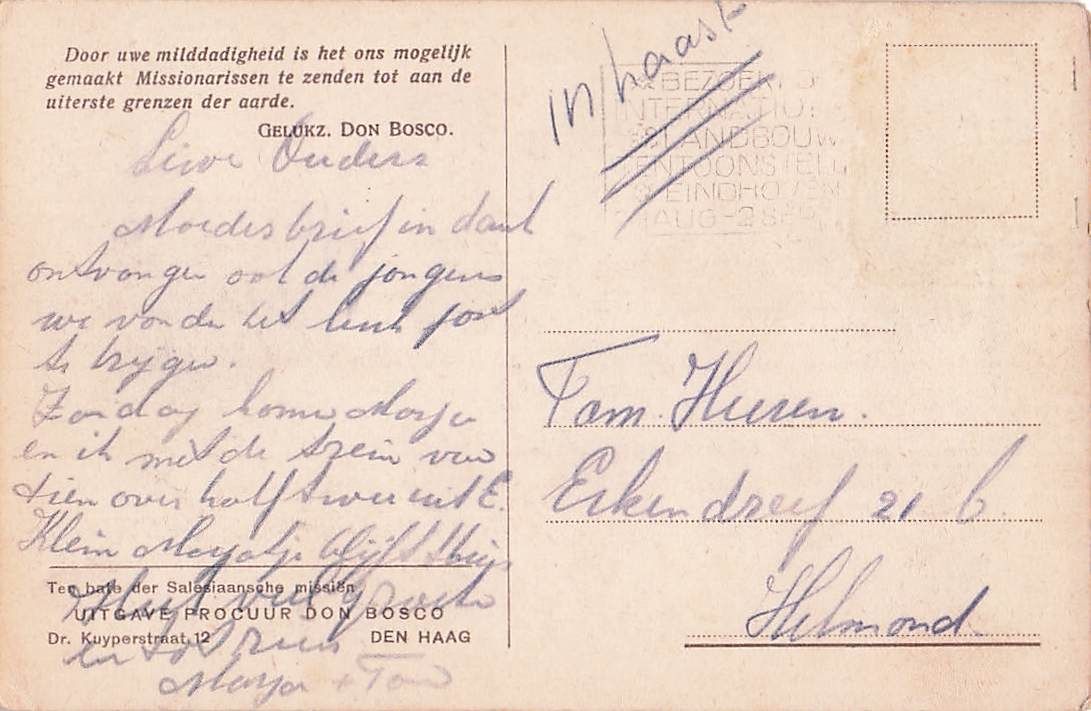 Door uwe milddadigheid is het ons mogelijk
gemaakt Missionarissen te zenden tot aan de
uiterste grenzen der aarde.
GELUKZ. DON BOSCO.
Lieve Ouders
Moeders brief in dank
ontvangen ook de jongens
we vonden het leuk post
te krijgen.
Zondag komen Marja
en ik met de trein van
tien over half twee uit E.
Klein Marjatje blijft thuis
veel groeten
en tot ziens
Marja + Tom
Ten bate der Salesiaansche missiën
UITGAVE PROCUUR DON BOSCO
Dr. Kuyperstraat 12 DEN HAAG
in haast
BEZOEKT D
INTERNATIO
LANDBOUW
TENTOONSTELL
EINDHOVEN
AUG-2SEP
Fam. Heeren.
Eikendreef 21 b.
Helmond.